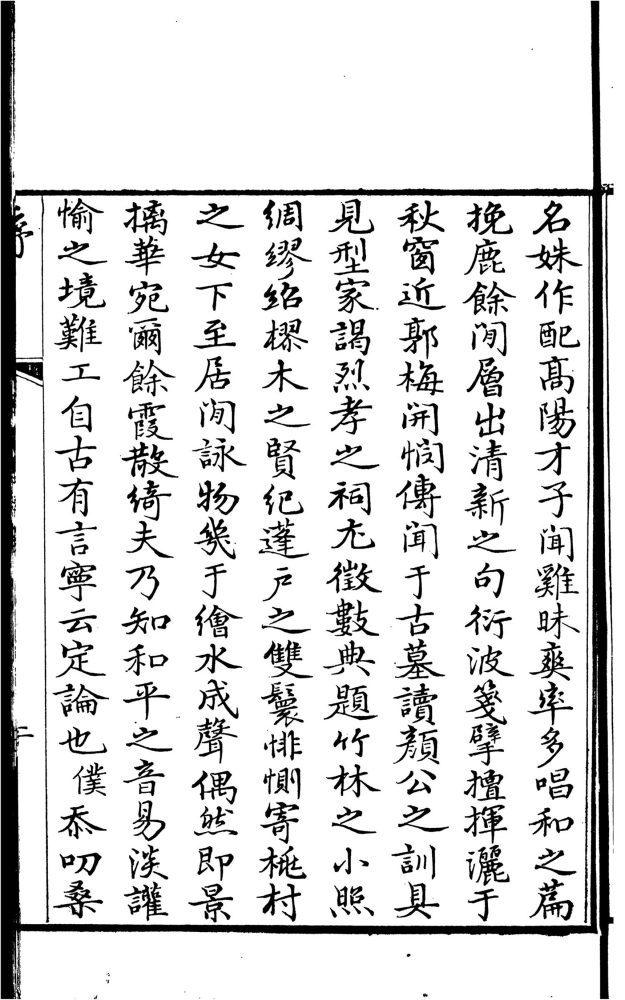 名姝作配高陽才子聞雞昧爽率多唱和之篇
挽鹿餘閒層出清新之句衍波箋擘擅揮灑于
秋窗近郭梅開悵傳聞于古墓讀顏公之訓具
見型家謁烈孝之祠尢徵數典題竹林之小照
綢繆紹樛木之賢紀蓬戶之雙鬟悱惻寄桃村
之女下至居閒詠物幾于繪水成聲偶然即景
摛華宛爾餘霞散綺夫乃知和平之音易淡讙
愉之境難工自古有言寧云定論也僕忝叨桑
序
二